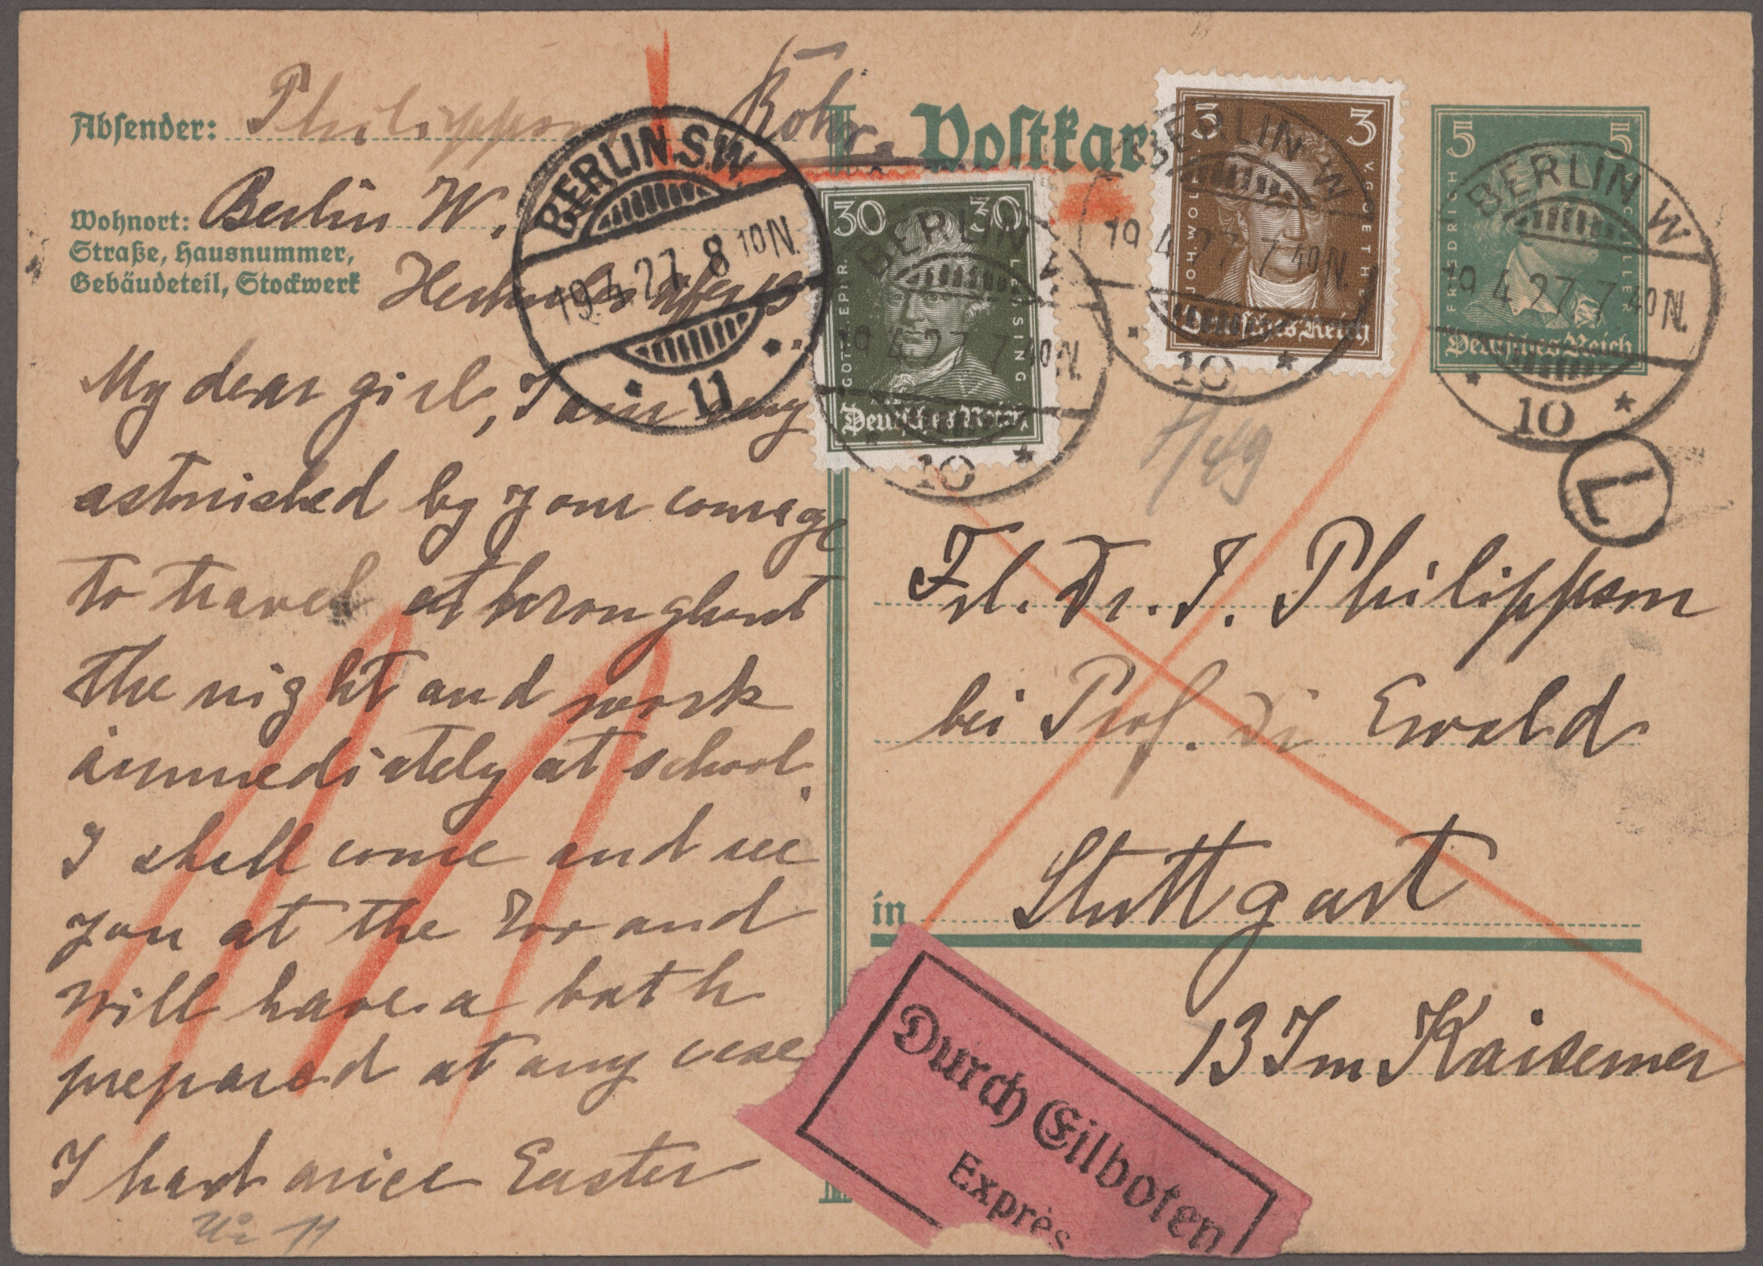 Absender: Philippson
Postkar
Wohnort: Berlin W.
Straße, Hausnummer,
Gebäudeteil, Stockwerk
My dear girl, I am very
astonished by your courage
to travel throughout
the night and work
immediately at school.
I shall come and see
you at the Zoo and
will have a bath
prepared at any case
I had a nice Easter
BERLIN SW
19.4.27. 8 10N.
* 11 *
30 30
GOTTH. EPHR. LESSING
Deutsches Reich
BERLIN W
19.4.27. 7 40N.
* 10 *
3 3
JOH. WOLFG. V. GOETHE
Deutsches Reich
BERLIN W
19.4.27. 7 40N.
* 10 *
5 5
FRIEDRICH V. SCHILLER
Deutsches Reich
BERLIN W
19.4.27. 7 40N.
* 10 *
L
Frl. Dr. J. Philippson
bei Prof. Dr Ewald
in Stuttgart
13 Im Kaisemer
Durch Eilboten
Exprès